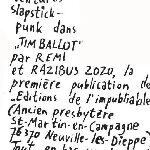 slapstick-
punk dans
"TIM BALLOT"
par REMI
et RAZIBUS 2020, la
première publication de
"Editions de l'impubliable
(Ancien presbytère
St-Martin-en-Campagne
76370 Neuville-les-Dieppe)